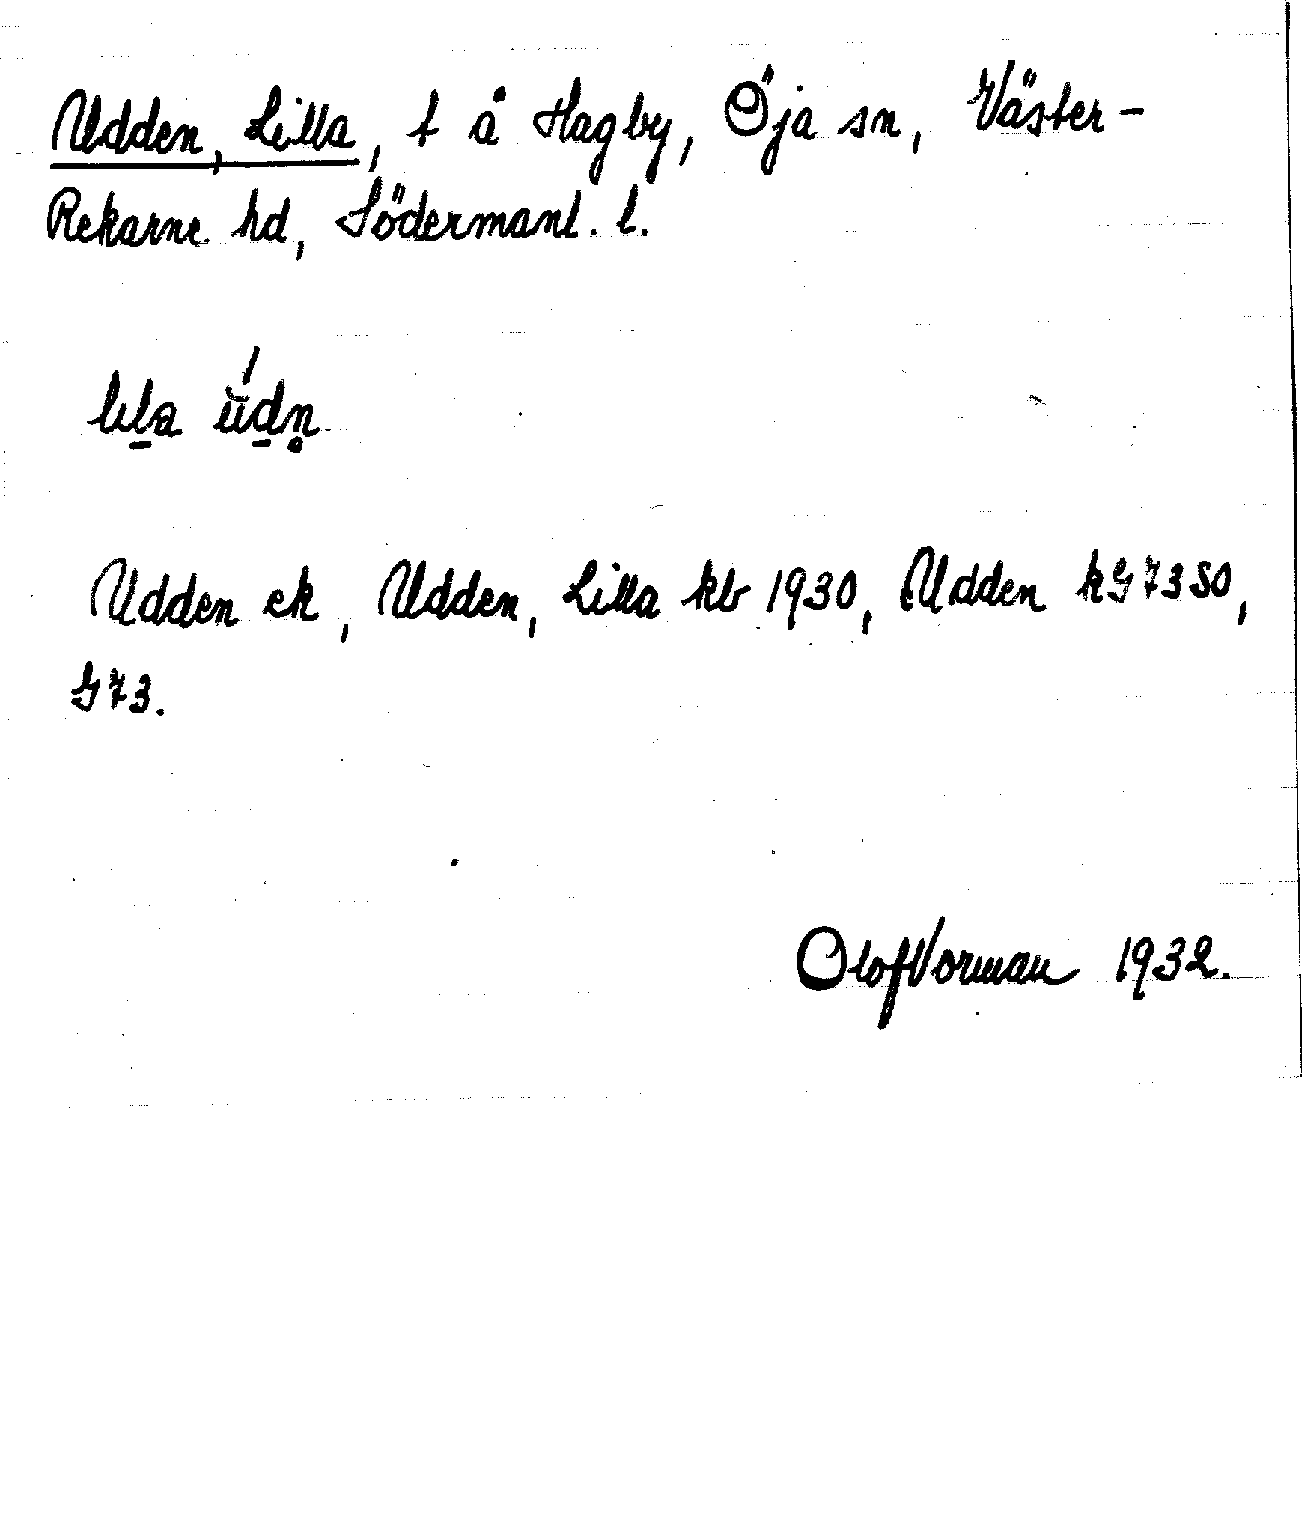 Udden, Lilla, t å Hagby, Öja sn, Väster-
Rekarne hd, Södermanl. l.
lila údn
Udden ek, Udden, Lilla kb 1930, Udden kG 73 SO,
G 73.
Olof Vorman 1932.